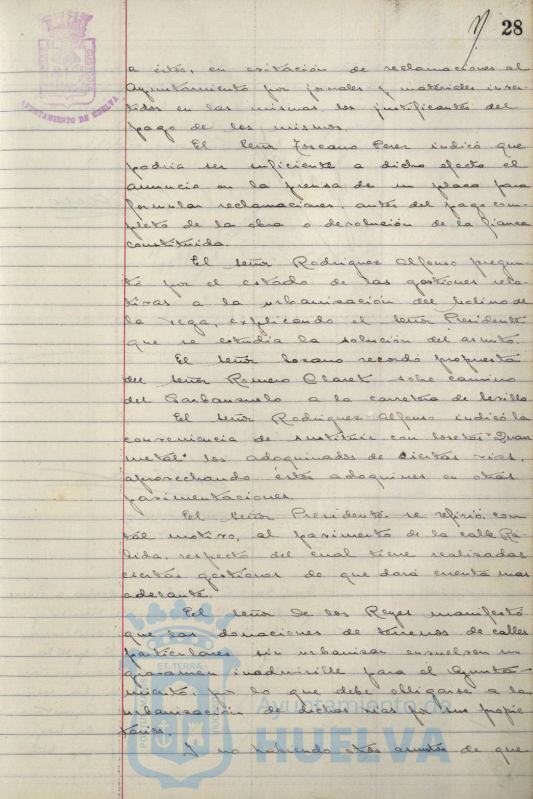 28
AYUNTAMIENTO DE HUELVA
a éstos, en evitación de reclamaciones al
Ayuntamiento por jornales y materiales inver-
tidos en las mismas, los justificantes del
pago de los mismos.
El Señor Toscano Perez indicó que
podria ser suficiente a dicho efecto el
anuncio en la prensa de un plazo para
formular reclamaciones, antes del pago com-
pleto de la obra o devolución de la fianza
constituida.
El Señor Rodriguez Alfonso pregun-
tó por el estado de las gestiones rela-
tivas a la urbanización del Molino de
la Vega, explicando el Señor Presidente
que se estudia la solución del asunto.
El Señor Lozano recordó propuesta
del Señor Romero Claret sobre camino
del a la carretera de Sevilla
El Señor Rodriguez Alfonso indicó la
conveniencia de sustituir con losetas "
metal" los adoquinados de ciertas vias,
aprovechando éstos adoquines en otras
pavimentaciones.
El Señor Presidente se refirió, con
tal motivo, al pavimento de la calle Rá-
bida, respecto del cual tiene realizadas
ciertas gestiones de que dará cuenta mas
adelante.
El Señor de los Reyes manifestó
que las donaciones de terrenos de calles
particulares sin urbanizar envuelven un
gravamen inadmisible para el Ayunta-
miento, por lo que debe obligarse a la
urbanización de dichas vias por sus propie-
tarios.
Y no habiendo otros asuntos de que
Ayuntamiento de
HUELVA